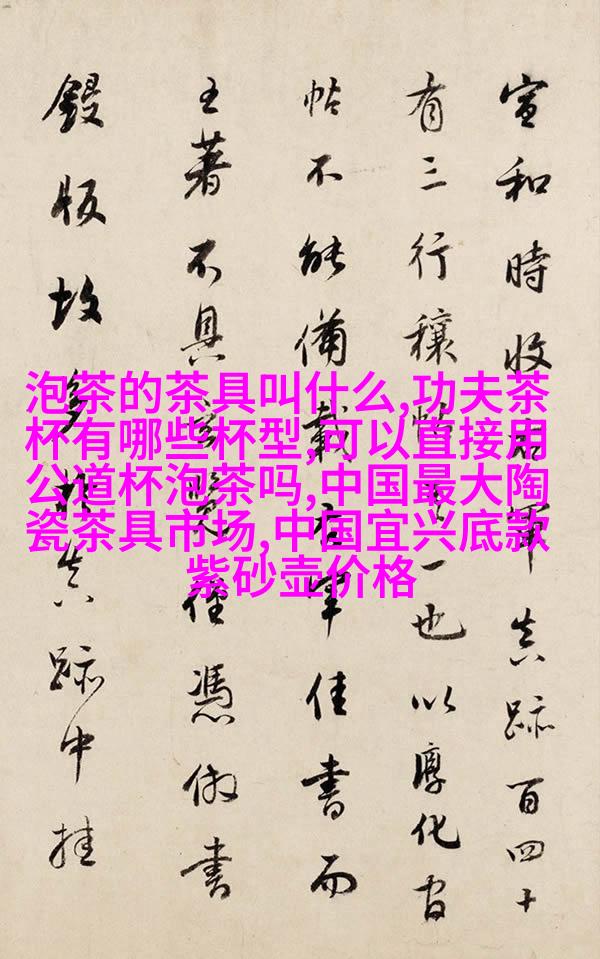 宣和時收右軍真跡百四十
有三行穰帖其一也以淳化官
帖不能備載右軍佳書而
王著不具覽僅憑倣書
鋟版故多於真跡中挂
泡茶的茶具叫什么,功夫茶
杯有哪些杯型,可以直接用
公道杯泡茶吗,中国最大陶
瓷茶具市场,中国宜兴底款
紫砂壶价格